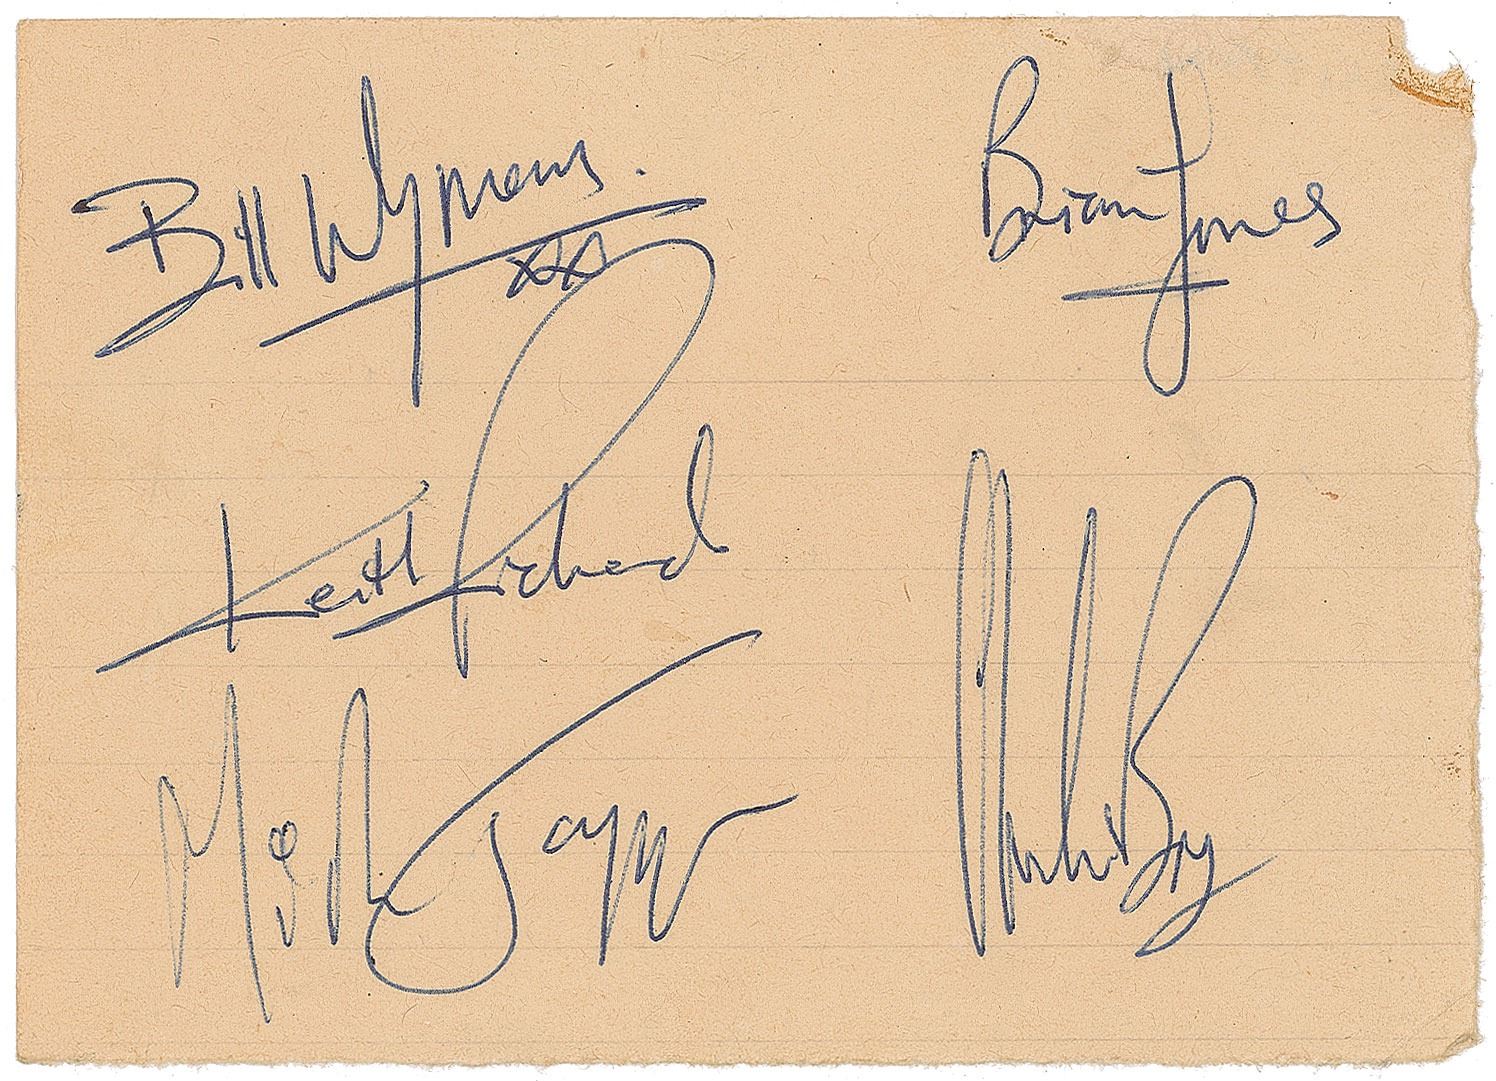 Bill Wyman.
xxx
Brian Jones
Keith Richard
Mick Jagger
Charlie